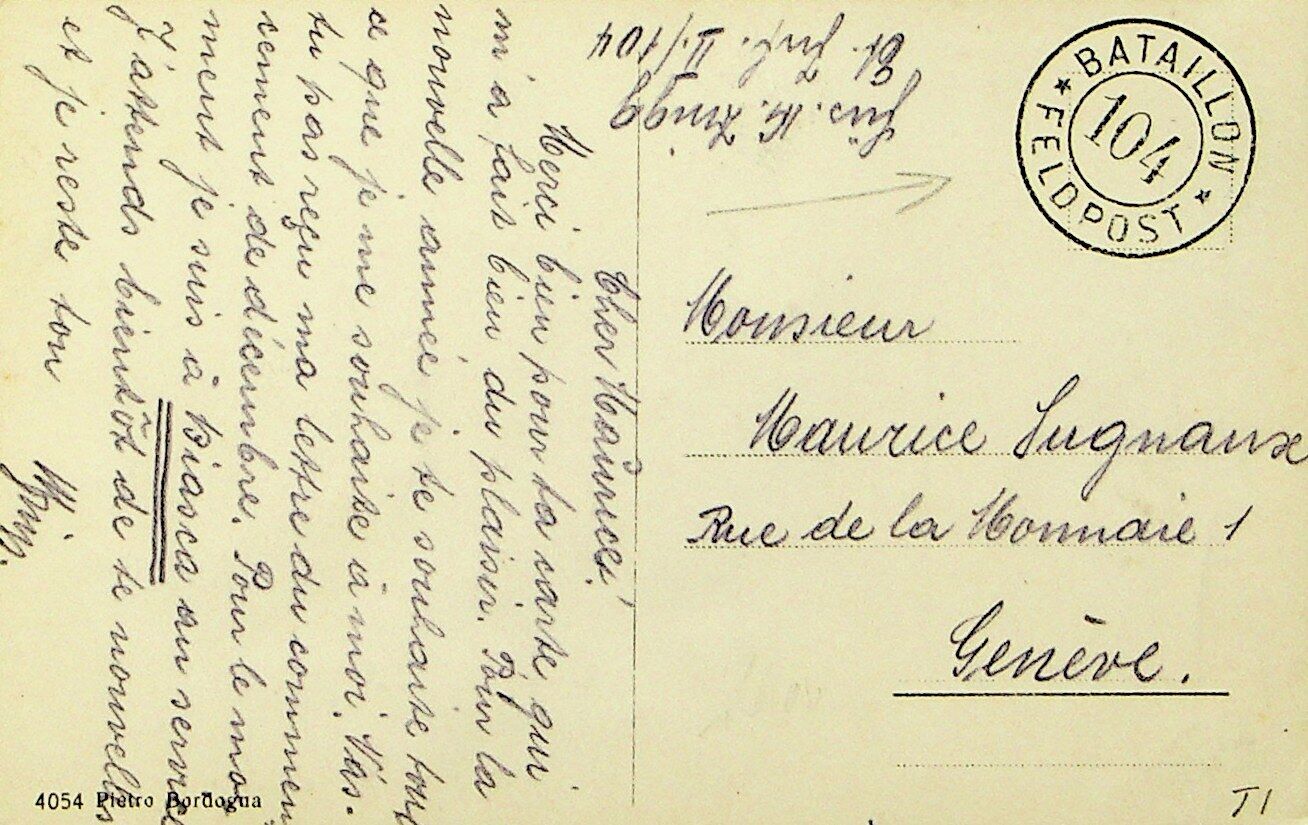 Cher Maurice!
Merci bien pour ta carte qui
m'a fait bien du plaisir. Pour la
nouvelle année je te souhaite tout
ce que je me souhaite à moi. N'as-
tu pas reçu ma lettre du commen
cement de décembre. Pour le mo
ment je suis à Biasca au service
J'attends bientôt de te nouvelles
et je reste ton
4054 Pietro Bordogna
II/104
BATAILLON
104
FELDPOST
Monsieur
Maurice Sugnaux
Rue de la Monnaie 1
Genève.
T1